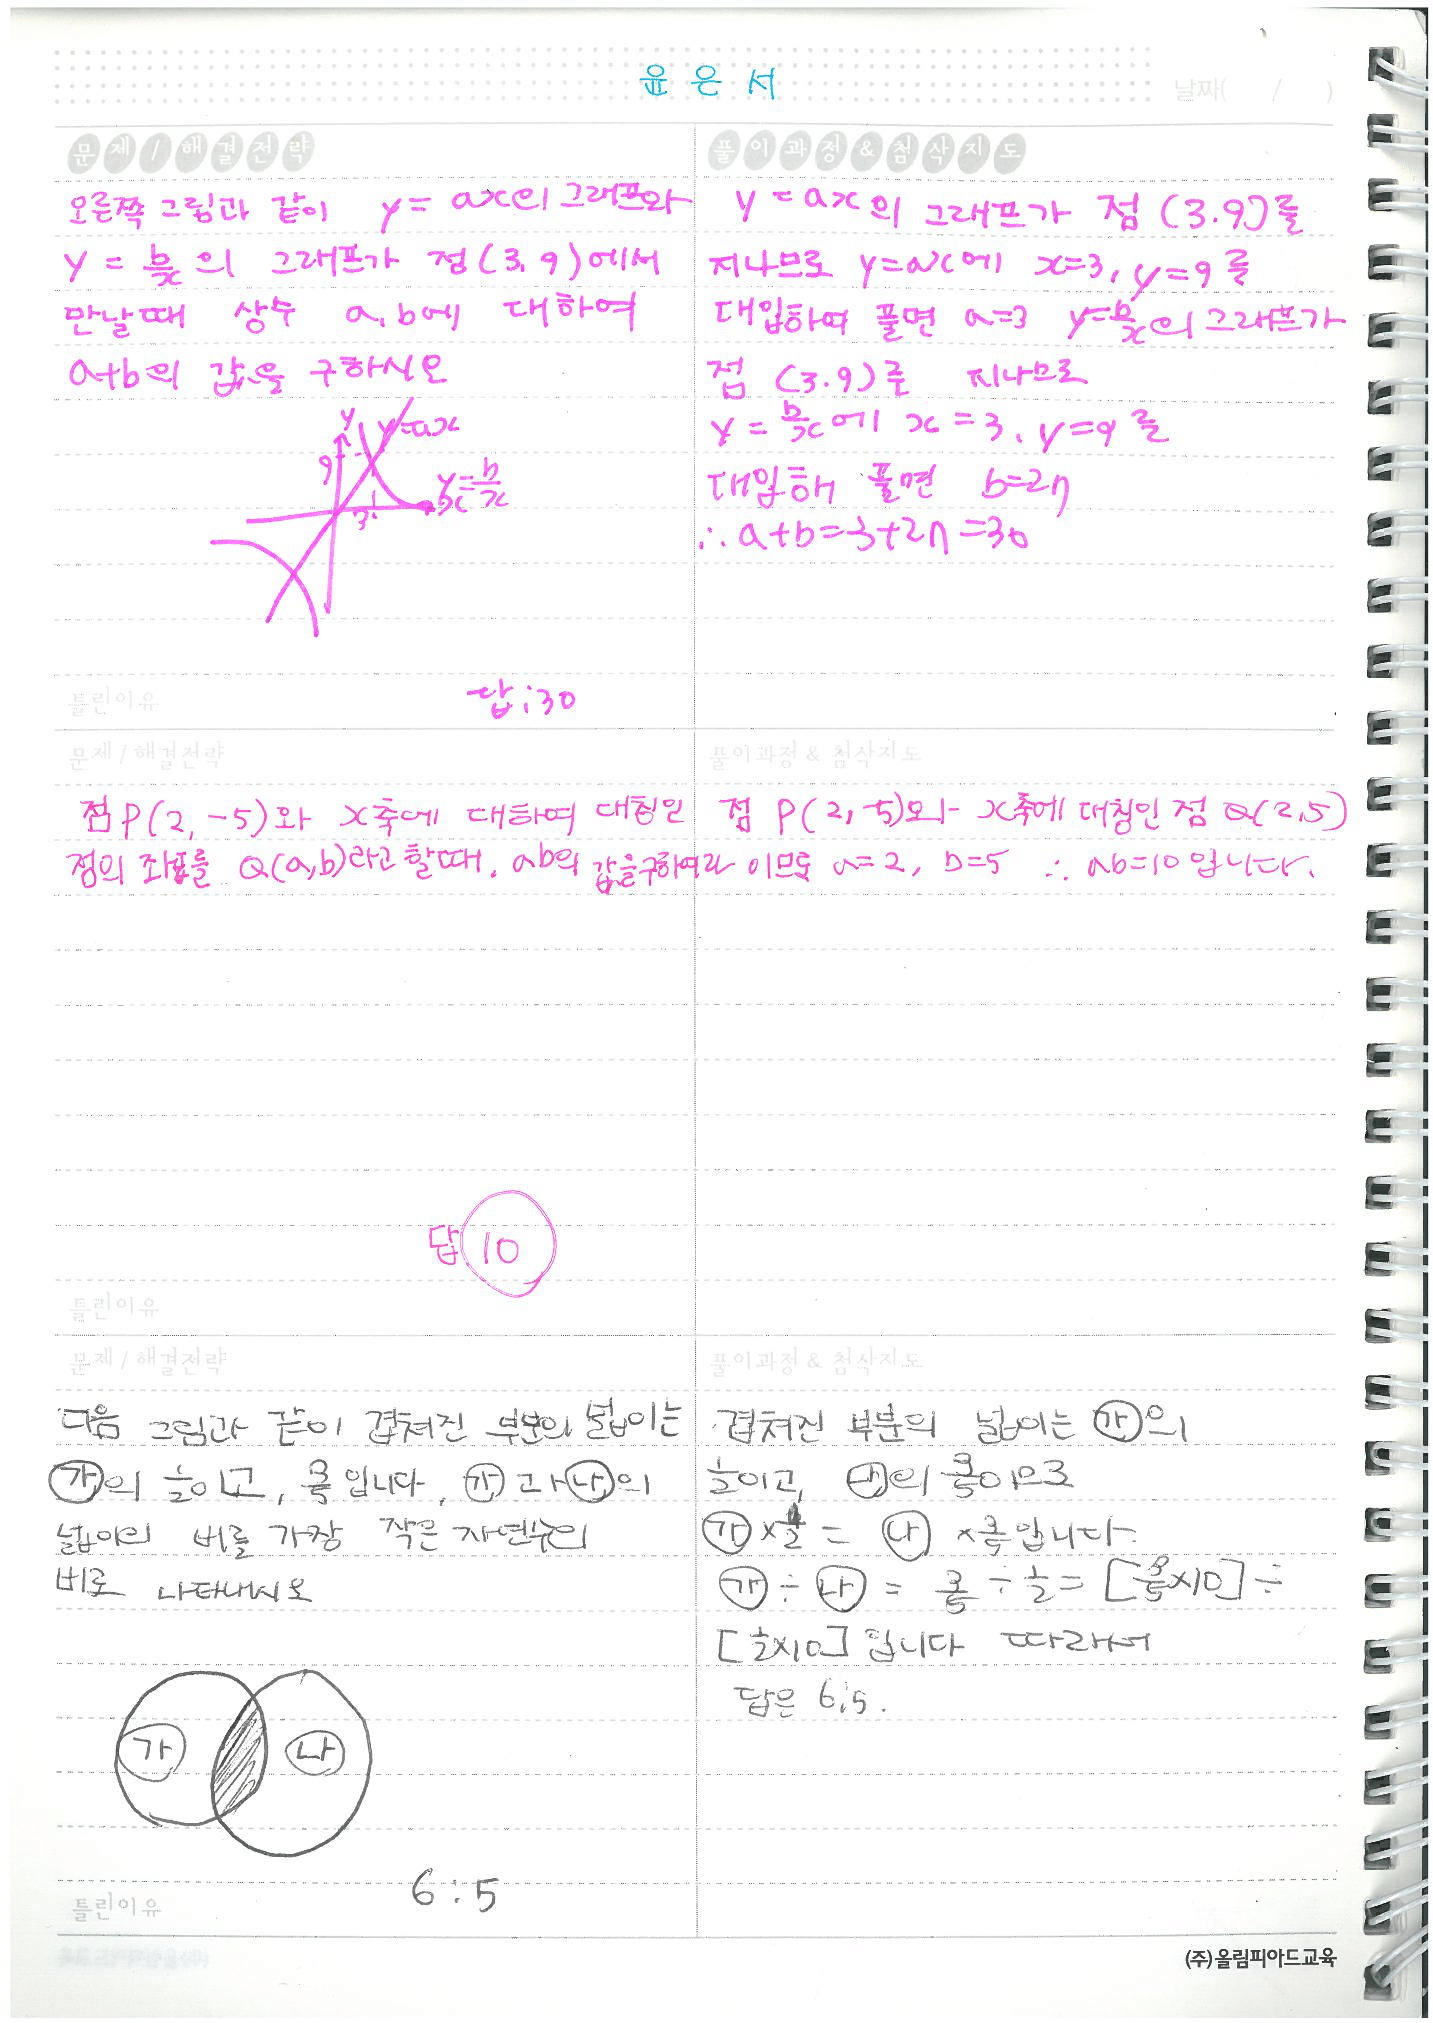 윤은서
날짜( / )
문제/해결전략
풀이과정&첨삭지도
오른쪽 그림과 같이 y=ax의 그래프와
y=b/x의 그래프가 점(3,9)에서
만날때 상수 a,b에 대하여
a+b의 값을 구하시오
y
y=ax
9
y=b/x
3
x
답:30
틀린이유
y=ax의 그래프가 점 (3.9)를
지나므로 y=ax에 x=3, y=9를
대입하여 풀면 a=3 y=b/x의 그래프가
점 (3.9)를 지나므로
y=b/x에 x=3, y=9를
대입해 풀면 b=27
∴a+b=3+27=30
문제/해결전략
풀이과정&첨삭지도
점P(2,-5)와 x축에 대하여 대칭인
점의 좌표를 Q(a,b)라고 할때, ab의 값을구하여라
답 10
틀린이유
점 P(2,-5)와 x축에 대칭인 점 Q(2,5)
이므로 a=2, b=5 ∴ab=10입니다.
문제/해결전략
풀이과정&첨삭지도
다음 그림과 같이 겹쳐진 부분의 넓이는
㉮의 1/2이고, 3/5입니다, ㉮과㉯의
넓이의 비를 가장 작은 자연수의
비로 나타내시오
㉮
㉯
6:5
틀린이유
겹쳐진 부분의 넓이는 ㉮의
1/2이고, ㉯의 3/5이므로
㉮×1/2=㉯×3/5입니다.
㉮÷㉯=3/5÷1/2=[3/5×10]÷
[1/2×10]입니다 따라서
답은 6:5.
(주)올림피아드교육